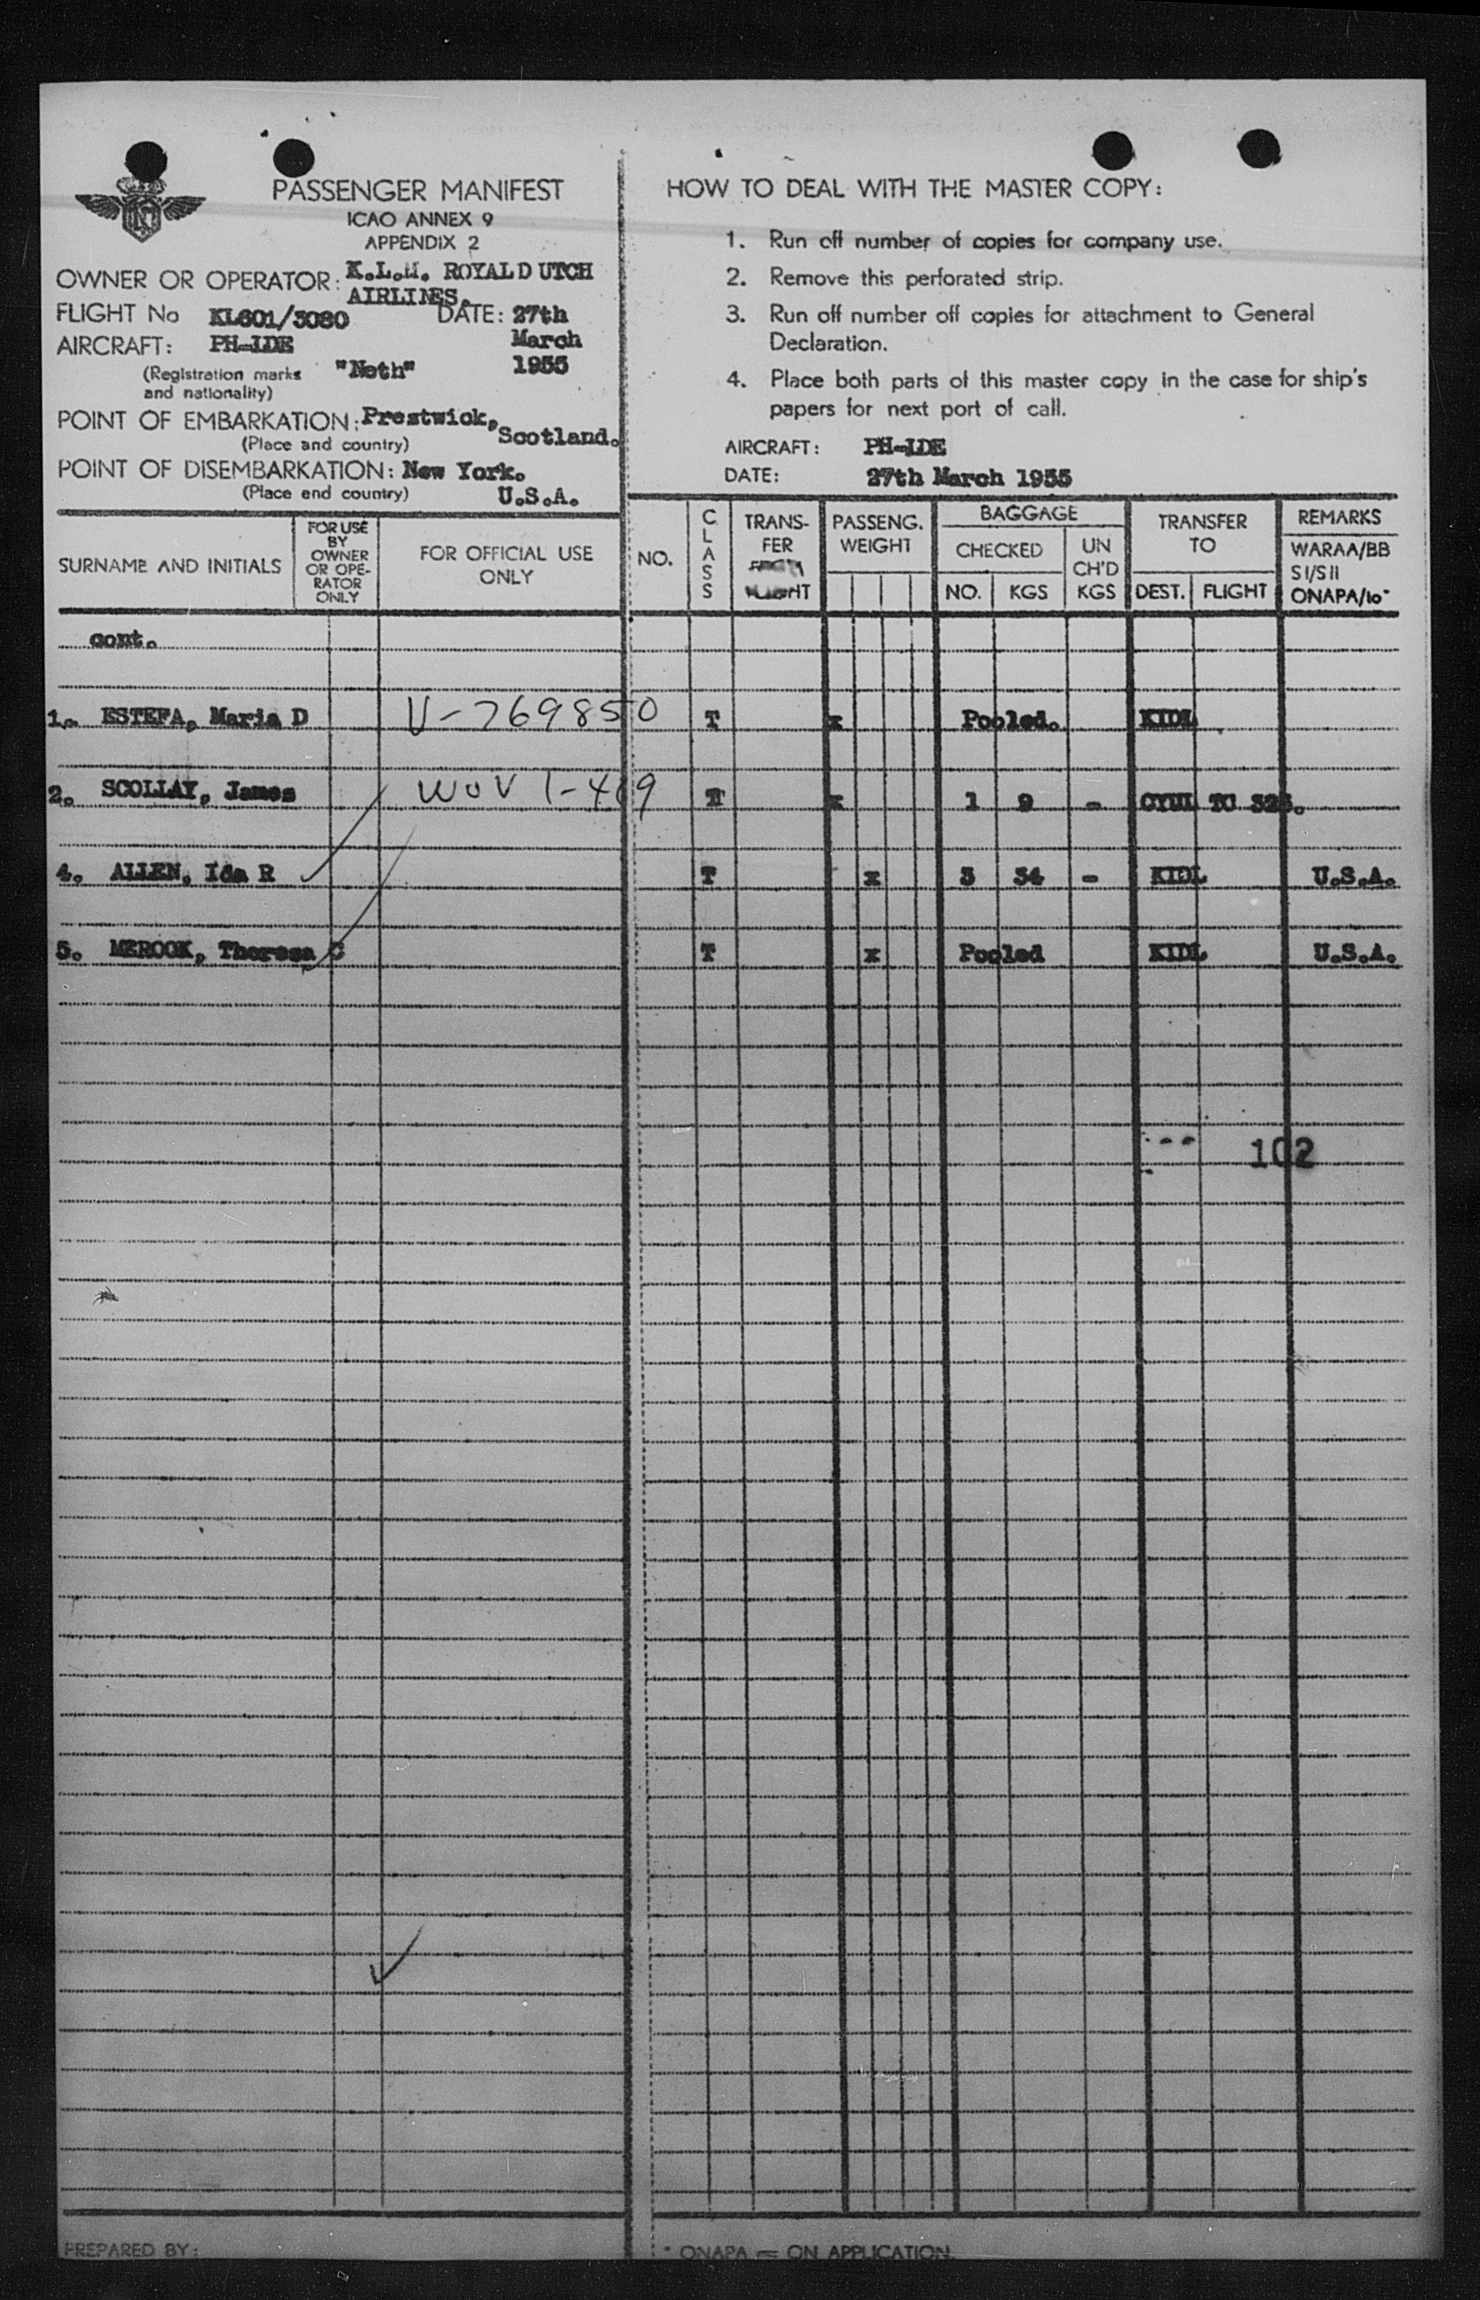 PASSENGER MANIFEST
ICAO ANNEX 9
APPENDIX 2
OWNER OR OPERATOR: K.L.M. ROYAL DUTCH
AIRLINES.
FLIGHT No KL601/3080 DATE: 27th
March
1955
AIRCRAFT: PH-LDE
(Registration marks and nationality) "Neth"
POINT OF EMBARKATION: Prestwick, Scotland.
(Place and country)
POINT OF DISEMBARKATION: New York.
(Place and country) U.S.A.
HOW TO DEAL WITH THE MASTER COPY:
1. Run off number of copies for company use.
2. Remove this perforated strip.
3. Run off number off copies for attachment to General
Declaration.
4. Place both parts of this master copy in the case for ship's
papers for next port of call.
AIRCRAFT: PH-LDE
DATE: 27th March 1955
SURNAME AND INITIALS
FOR USE
BY
OWNER
OR OPE-
RATOR
ONLY
FOR OFFICIAL USE
ONLY
NO.
CLASS
TRANS-
FER
PASSENG.
WEIGHT
BAGGAGE
CHECKED
NO. KGS
UN
CH'D
KGS
TRANSFER
TO
DEST. FLIGHT
REMARKS
WARAA/BB
SI/SII
ONAPA/10*
cont.
1. ESTEFA, Maria D V-769850 T x Pooled. KIDL
2. SCOLLAY, James T x 1 9 - CYUL TC 325.
4. ALLEN, Ida R T x 3 34 - KIDL U.S.A.
5. MEROOK, Theresa C T x Pooled KIDL U.S.A.
102
PREPARED BY:
* ONAPA = ON APPLICATION.